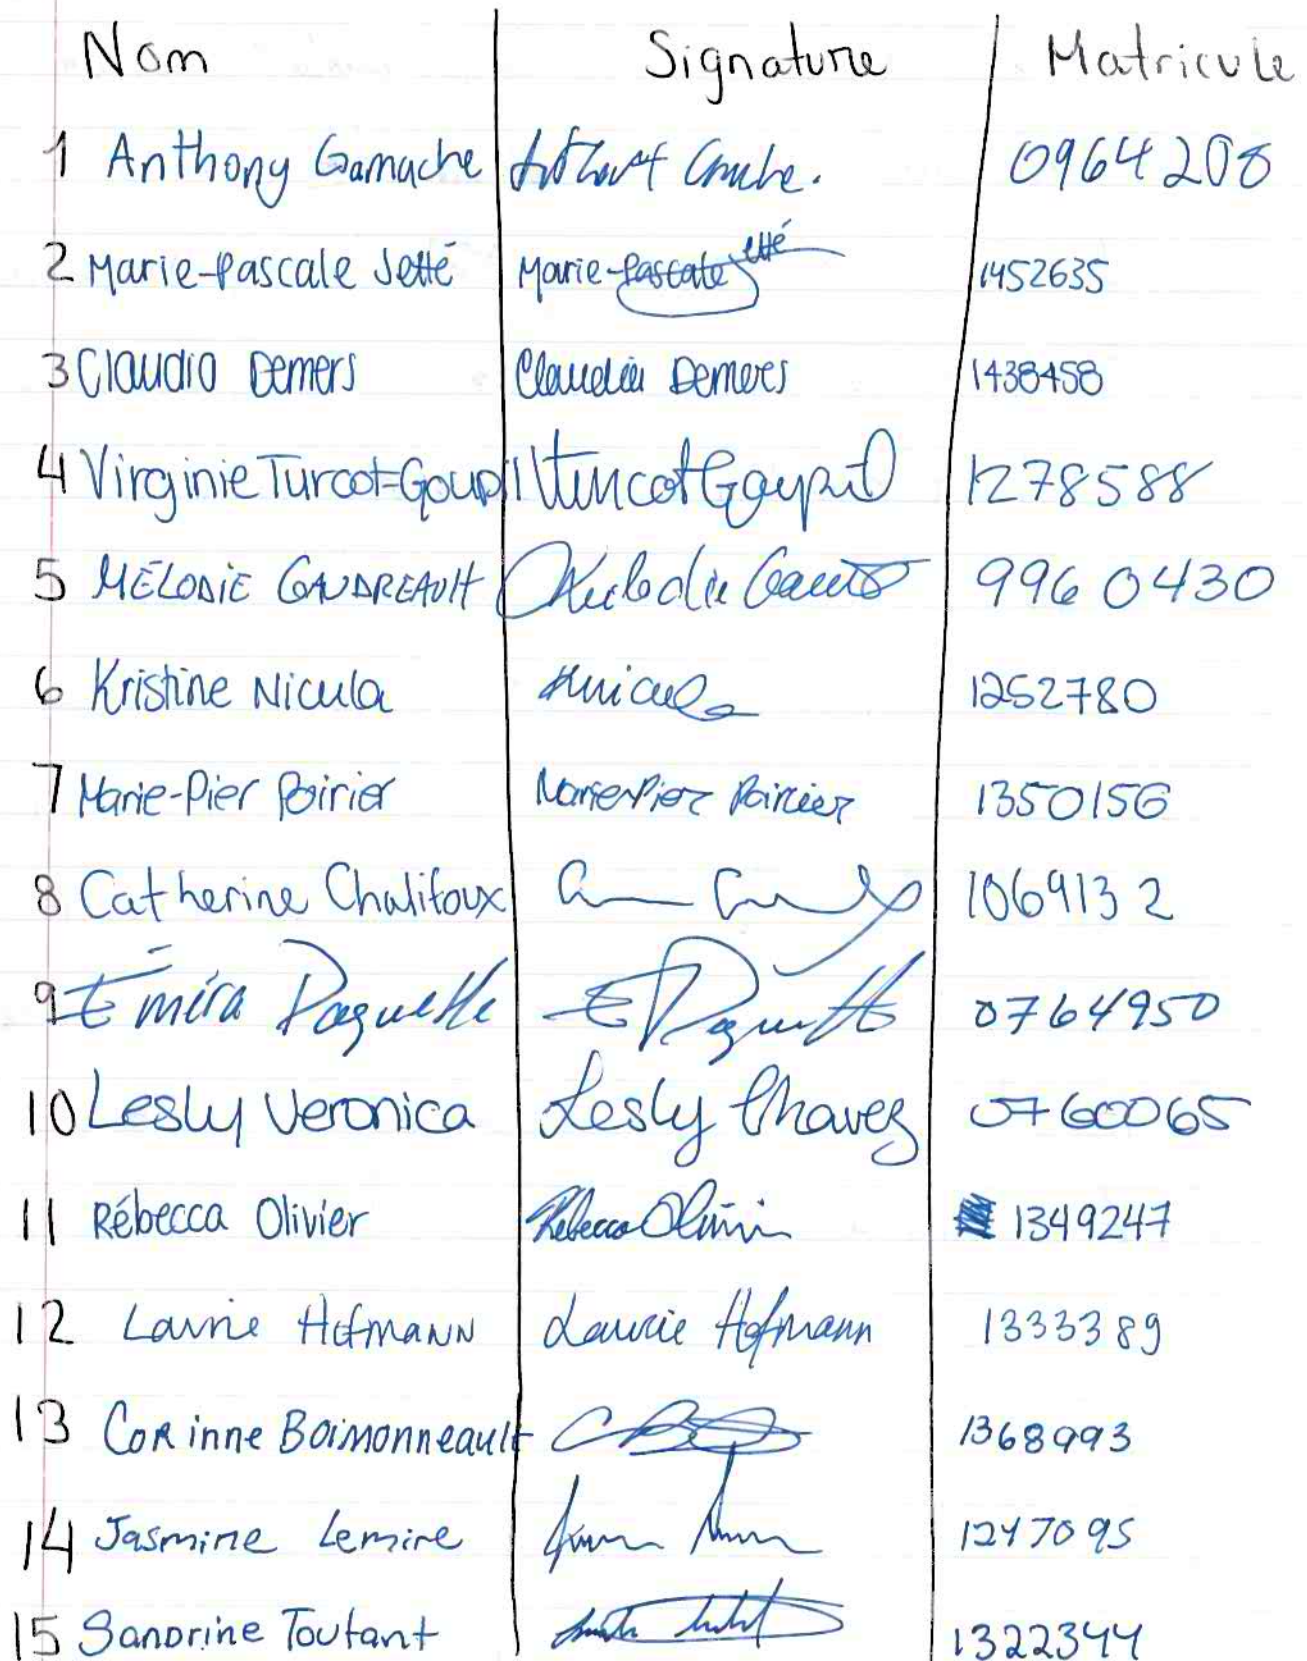 Nom Signature Matricule
1 Anthony Gamache 0964208
2 Marie-Pascale Jetté Marie-Pascale Jetté 1452635
3 Claudia Demers Claudia Demers 1438458
4 Virginie Turcot-Goupil VTurcotGoupil 1278588
5 MÉLODIE GAUDREAULT Mélodie 9960430
6 Kristine Nicula Knicula 1252780
7 Marie-Pier Poirier Marie-Pier Poirier 1350156
8 Catherine Chalifoux 1069132
9 Émira Paquette E Paquette 0764950
10 Lesly Veronica Lesly Chavez 0760065
11 Rébecca Olivier Rébecca Olivier 1349247
12 Laurie Hofmann Laurie Hofmann 1333389
13 Corinne Boimonneault 1368993
14 Jasmine Lemire 1247095
15 Sandrine Toutant 1322344